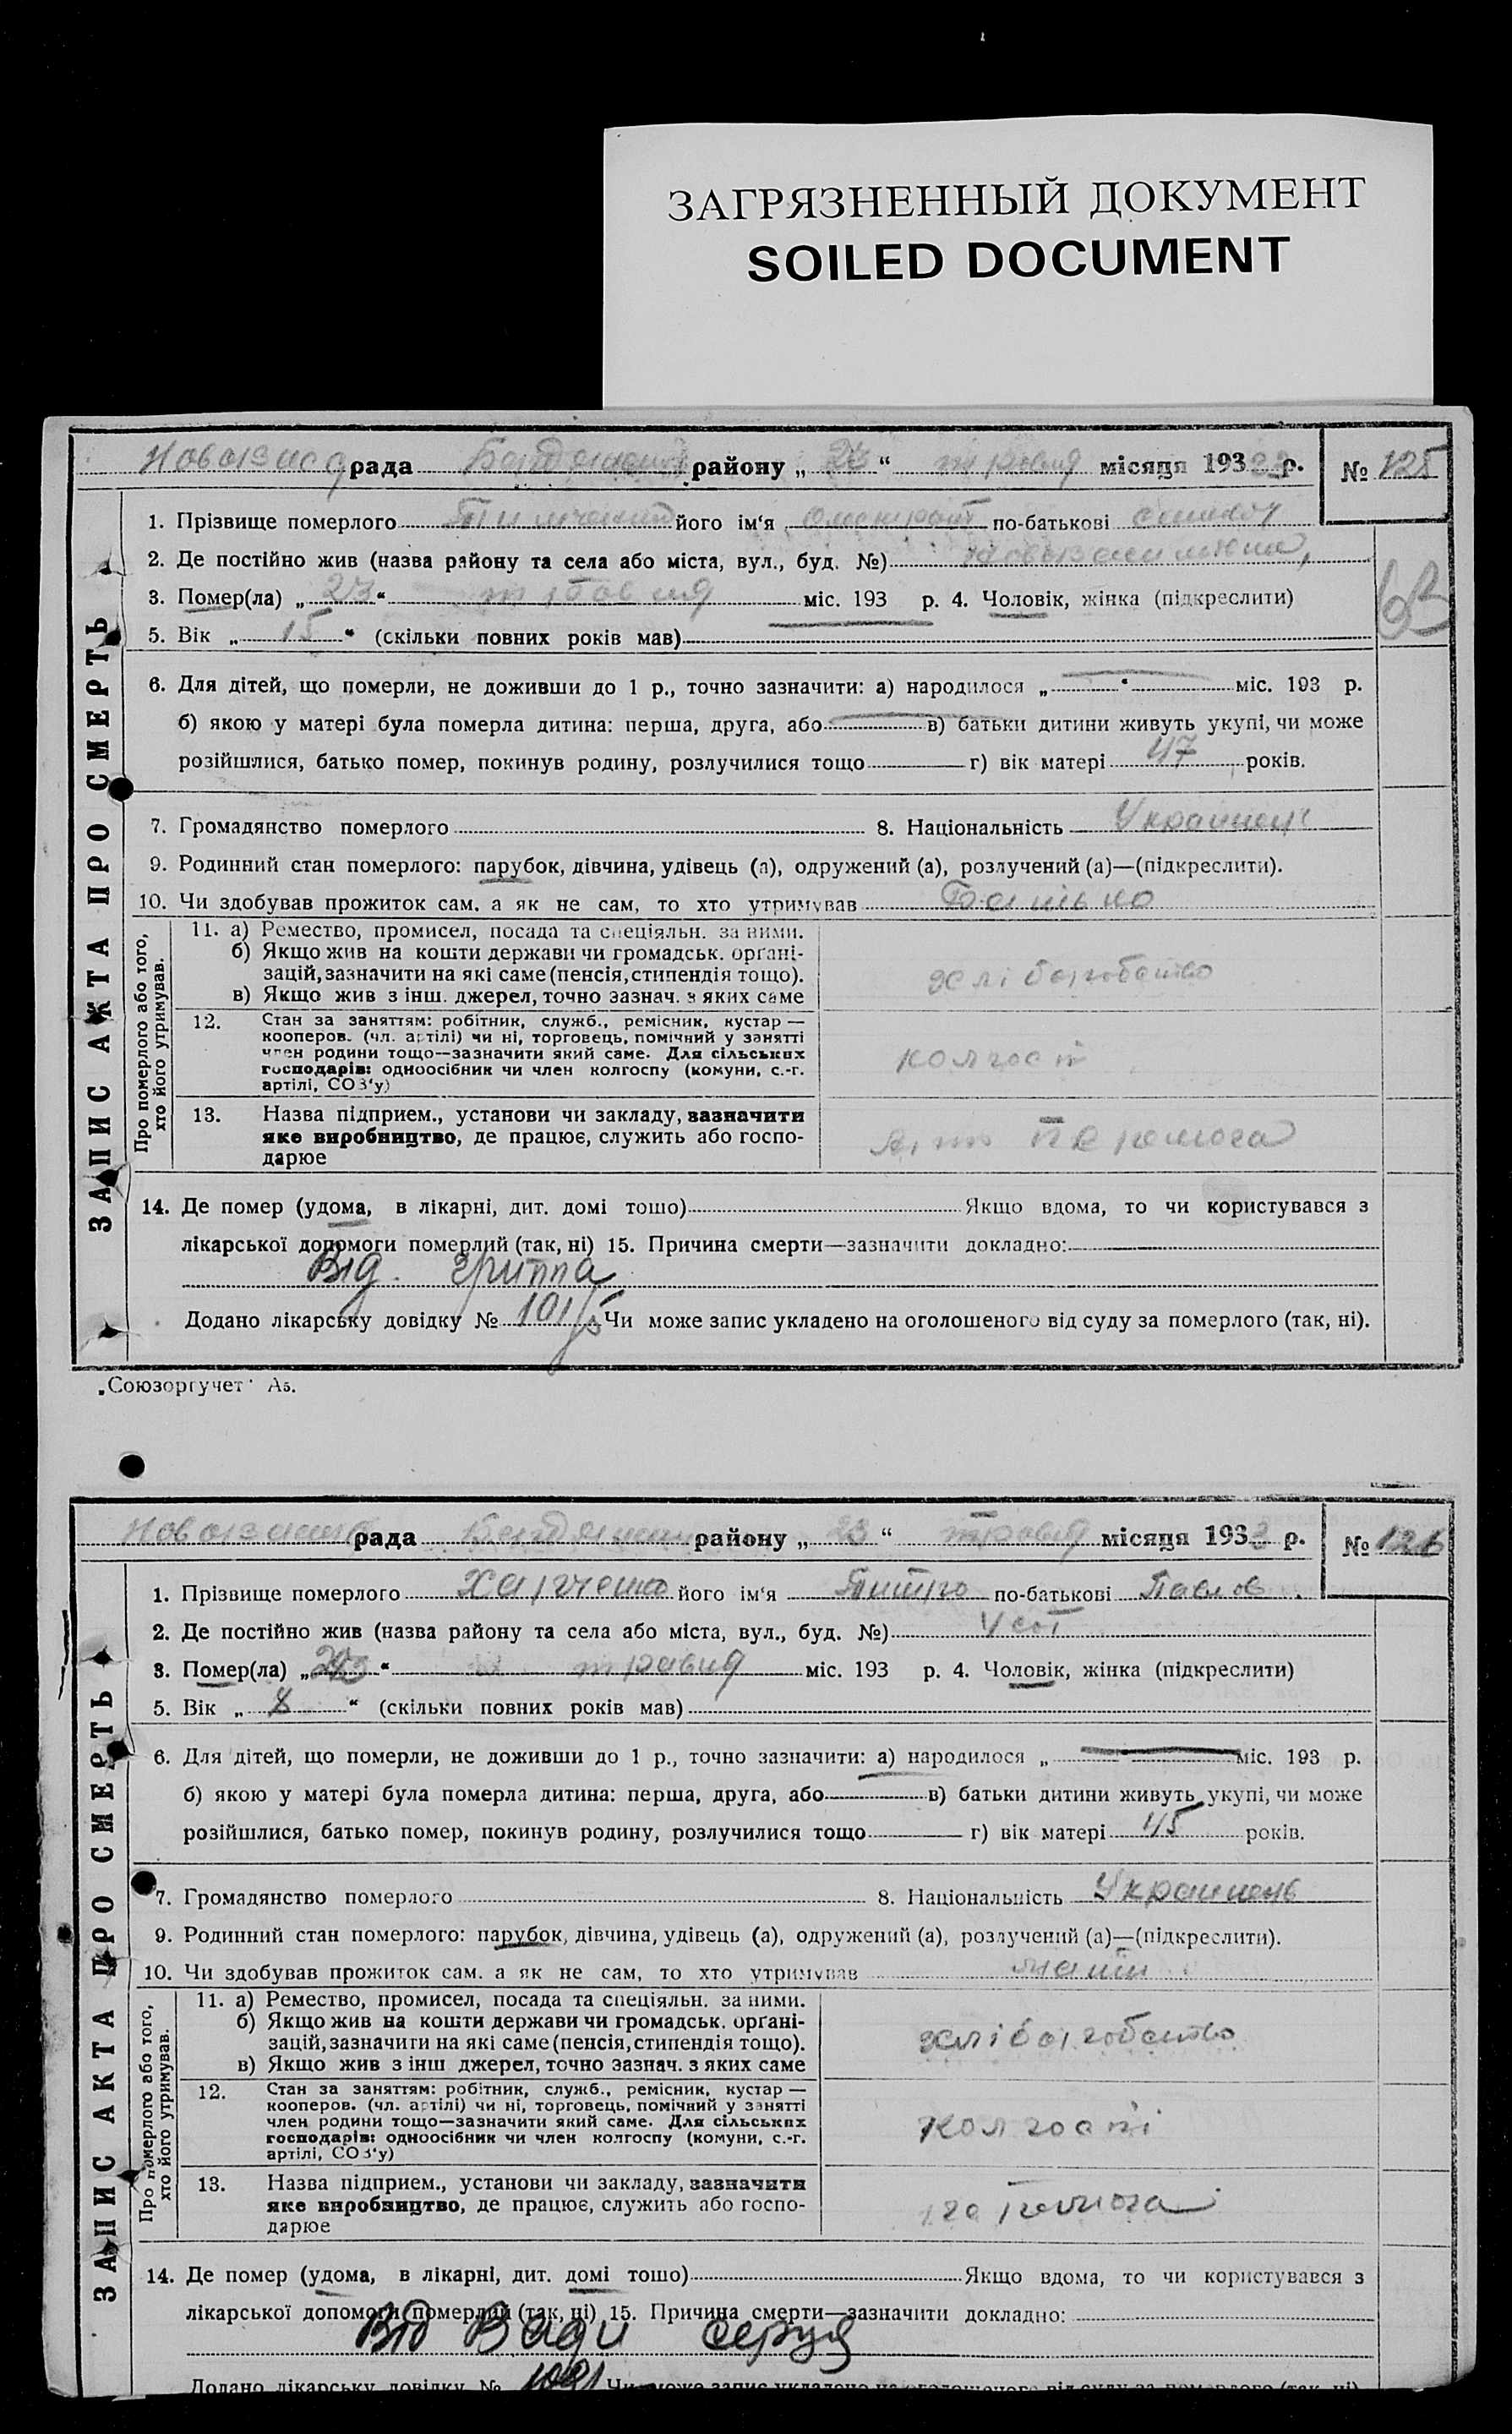 ЗАГРЯЗНЕННЫЙ ДОКУМЕНТ
SOILED DOCUMENT
рада району „ 23 “ травня місяця 193 р. № 125
ЗАПИС АКТА ПРО СМЕРТЬ
1. Прізвище померлого його ім‘я по-батькові
2. Де постійно жив (назва району та села або міста, вул., буд. №)
3. Помер(ла) „ 23 “ травня міс. 193 р. 4. Чоловік, жінка (підкреслити)
5. Вік „ 15 “ (скільки повних років мав)
6. Для дітей, що померли, не доживши до 1 р., точно зазначити: а) народилося „ “ міс. 193 р.
б) якою у матері була померла дитина: перша, друга, або в) батьки дитини живуть укупі, чи може
розійшлися, батько помер, покинув родину, розлучилися тощо г) вік матері 47 років.
7. Громадянство померлого 8. Національність Українець
9. Родинний стан померлого: парубок, дівчина, удівець (а), одружений (а), розлучений (а)—(підкреслити).
10. Чи здобував прожиток сам, а як не сам, то хто утримував Батько
Про померлого або того, хто його утримував.
11. а) Ремество, промисел, посада та спеціяльн. за ними.
б) Якщо жив на кошти держави чи громадськ. органі-
зацій, зазначити на які саме (пенсія, стипендія тощо).
в) Якщо жив з інш. джерел, точно зазнач. з яких саме
хліборобство
12. Стан за заняттям: робітник, служб., ремісник, кустар —
кооперов. (чл. артілі) чи ні, торговець, помічний у занятті
член родини тощо—зазначити який саме. Для сільських
господарів: одноосібник чи член колгоспу (комуни, с.-г.
артілі, СОЗ‘у)
колгосп
13. Назва підприєм., установи чи закладу, зазначити
яке виробництво, де працює, служить або госпо-
дарює
14. Де помер (удома, в лікарні, дит. домі тощо) Якщо вдома, то чи користувався з
лікарської допомоги померлий (так, ні) 15. Причина смерти—зазначити докладно:
Від гриппа
Додано лікарську довідку № 101/5 Чи може запис укладено на оголошеного від суду за померлого (так, ні).
„Союзоргучет“ А5.
рада району „ 23 “ травня місяця 1933 р. № 126
ЗАПИС АКТА ПРО СМЕРТЬ
1. Прізвище померлого Харченко його ім‘я по-батькові Павлов
2. Де постійно жив (назва району та села або міста, вул., буд. №)
3. Помер(ла) „ 23 “ травня міс. 193 р. 4. Чоловік, жінка (підкреслити)
5. Вік „ 8 “ (скільки повних років мав)
6. Для дітей, що померли, не доживши до 1 р., точно зазначити: а) народилося „ міс. 193 р.
б) якою у матері була померла дитина: перша, друга, або в) батьки дитини живуть укупі, чи може
розійшлися, батько помер, покинув родину, розлучилися тощо г) вік матері 45 років.
7. Громадянство померлого 8. Національність Українець
9. Родинний стан померлого: парубок, дівчина, удівець (а), одружений (а), розлучений (а)—(підкреслити).
10. Чи здобував прожиток сам, а як не сам, то хто утримував мати
Про померлого або того, хто його утримував.
11. а) Ремество, промисел, посада та спеціяльн. за ними.
б) Якщо жив на кошти держави чи громадськ. органі-
зацій, зазначити на які саме (пенсія, стипендія тощо).
в) Якщо жив з інш джерел, точно зазнач. з яких саме
хліборобство
12. Стан за заняттям: робітник, служб., ремісник, кустар —
кооперов. (чл. артілі) чи ні, торговець, помічний у занятті
член родини тощо—зазначити який саме. Для сільських
господарів: одноосібник чи член колгоспу (комуни, с.-г.
артілі, СОЗ‘у)
колгосп
13. Назва підприєм., установи чи закладу, зазначити
яке виробництво, де працює, служить або госпо-
дарює
14. Де помер (удома, в лікарні, дит. домі тощо) Якщо вдома, то чи користувався з
лікарської допомоги померлий (так, ні) 15. Причина смерти—зазначити докладно:
Від Вади серця
Додано лікарську довідку № Чи може запис укладено на оголошеного від суду за померлого (так, ні)